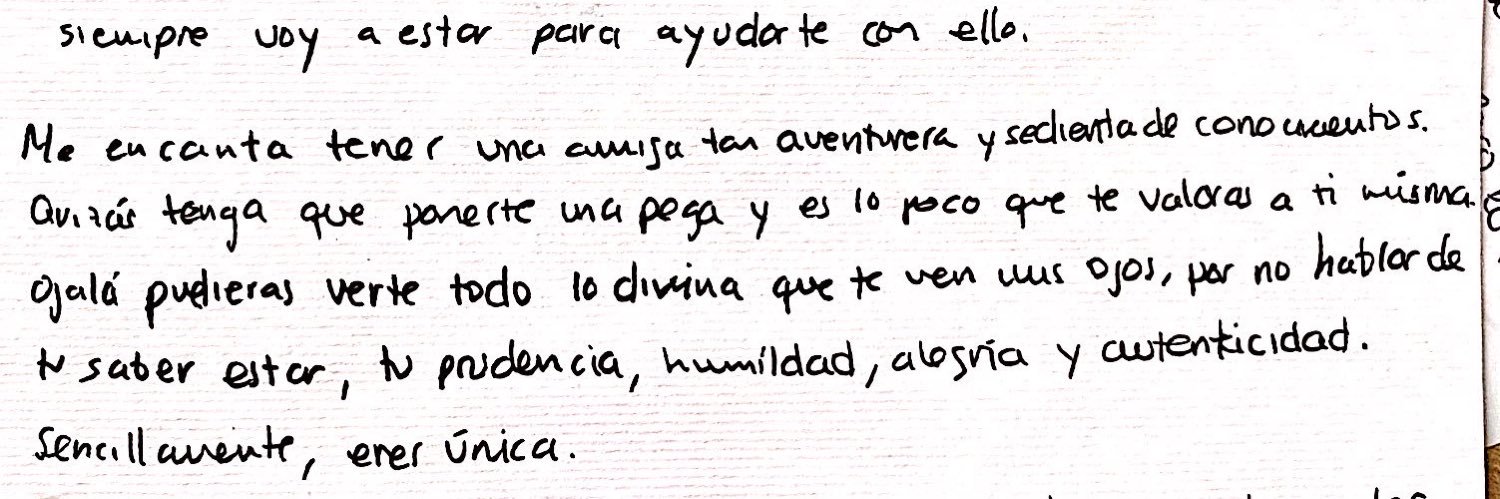 siempre voy a estar para ayudarte con ello.
Me encanta tener una amiga tan aventurera y sedienta de conocimientos.
Quizás tenga que ponerte una pega y es lo poco que te valoras a ti misma.
Ojalá pudieras verte todo lo divina que te ven mis ojos, por no hablar de
tu saber estar, tu prudencia, humildad, alegría y autenticidad.
Sencillamente, eres única.